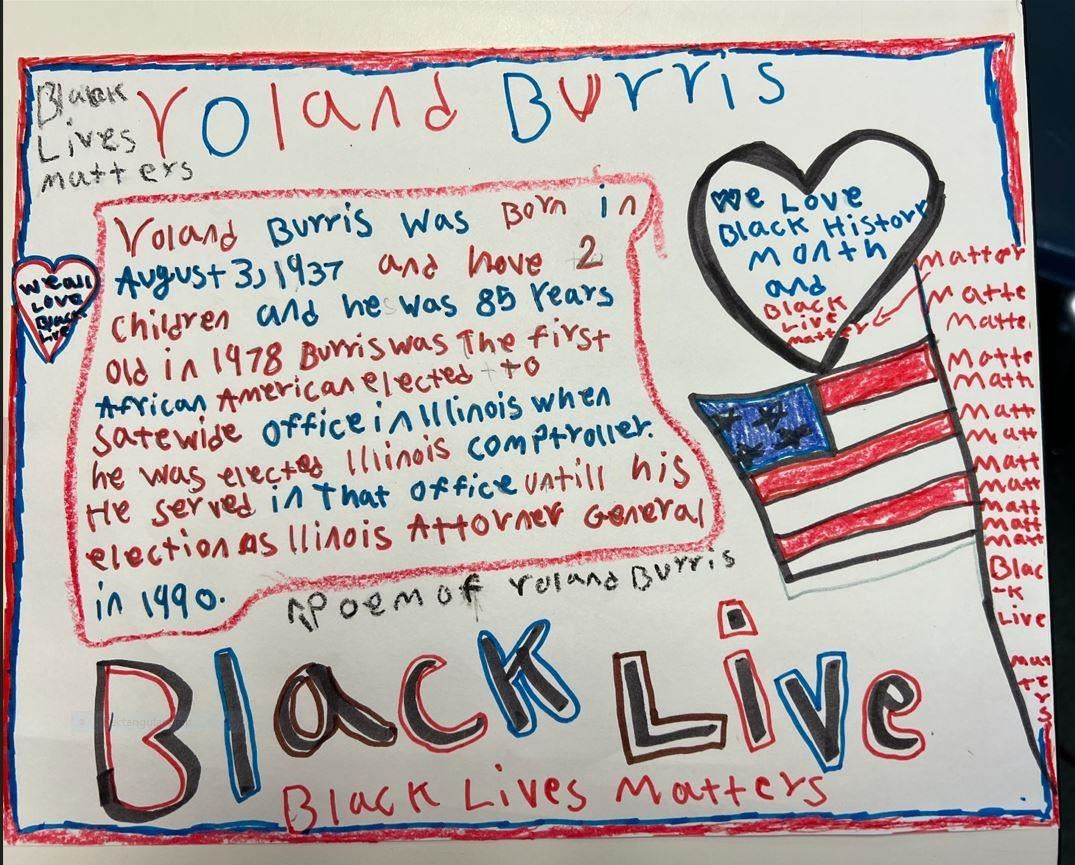 Black
Lives
matters
Yoland Burris
We Love
Black History
Month
and
Black
Live
matter
we all
Love
Black
Live
Yoland Burris was Born in
August 3, 1937 and hove 2
children and he was 85 Years
old in 1978 Burris was The first
African American elected to
satewide office in Illinois when
he was elected Illinois comptroller.
He served in That office untill his
election as Ilinois Attorner General
in 1990.
Poem of Yoland Burris
matter
matte
Matte
Motte
Math
Matt
Matt
Matt
Matt
Matt
Matt
Matt
Blac
-k
Live
mat
ter
s
Black Live
Black Lives Matters